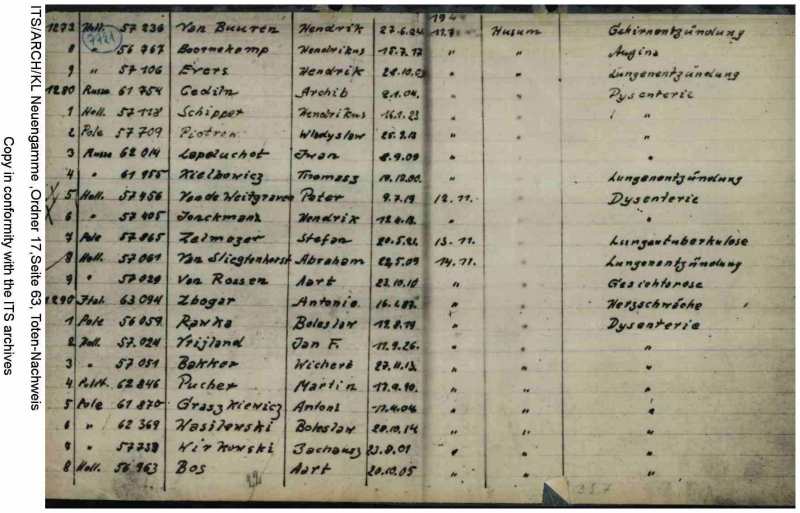 ITS/ARCH/KL Neuengamme ,Ordner 17,Seite 63, Toten-Nachweis
Copy in conformity with the ITS archives
194
Holl. 57 236 Van Buuren Hendrik 27.6.24 Husum Gehirnentzündung
7721
8 " 56 767 Boornekamp Hendrikus 15.7.17 " " Angina
9 " 57 106 Evers Hendrik " " Lungenentzündung
1280 Russe 61 754 Gediln Archib 2.1.04. " " Dysenterie
1 Holl. 57 118 Schipper Hendrikus 16.1.23 " " "
2 Pole 57 709 Piotren Wladyslaw " " "
3 Russe 62 014 Lapeluchot Iwan 8.9.09 " " "
4 " 61 155 Kielbowicz Thomasz 14.12.00. " " Lungenentzündung
5 Holl. 57 456 Van de Weitgraven Peter 9.7.19 12.11. " Dysenterie
6 " 57 405 Jonckmans Hendrik " " "
7 Pole 57 865 Zelmozer Stefan 20.5.21. 13.11. " Lungentuberkulose
8 Holl. 57 061 Van Sliegtenhorst Abraham 22.5.09 14.11. " Lungenentzündung
9 " 57 029 Van Rossen Aart 23.10.10 " " Gesichtsrose
1290 Ital. 63 094 Zbogar Antonio " " Herzschwäche
1 Pole 56 059 Rawka Boleslaw 12.8.19 " " Dysenterie
2 Holl. 57 024 Vrijland Jan F. 11.9.26. " " "
3 " 57 051 Bakker Wichert 27.11.13. " " "
4 62 846 Pucher Martin " " "
5 Pole 61 870 Graszkiewicz Antoni " " "
6 " 62 369 Wasilewski Boleslaw 20.10.14 " " "
7 " 57 738 Wirkowski 23.8.01 " " "
8 Holl. 56 963 Bos Aart 20.10.05 " " "
22